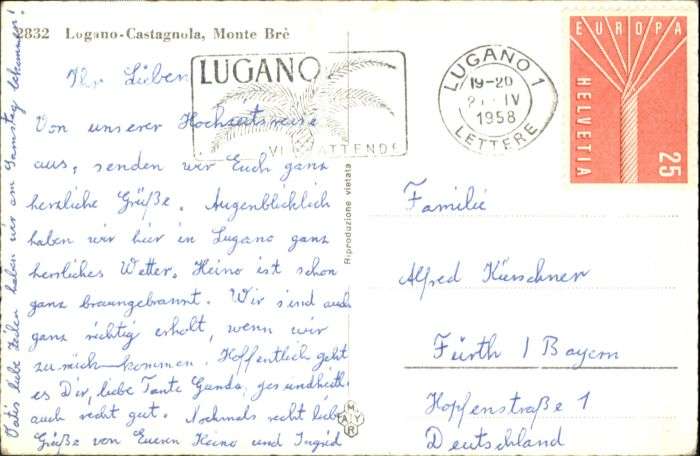 2832 Lugano-Castagnola, Monte Brè
Ihr Lieben
Von unserer Hochzeitsreise
aus, senden wir Euch ganz
herzliche Grüße. Augenblicklich
haben wir hier in Lugano ganz
herrliches Wetter. Heino ist schon
ganz braungebrannt. Wir sind auch
ganz richtig erholt, wenn wir
zurück kommen. Hoffentlich geht
es Dir, liebe Tante Gunda, gesundheitl.
auch recht gut. Nochmals recht liebe
Grüße von Euren Heino und Ingrid
Vatis liebe Zeilen haben wir am Samstag bekommen!
LUGANO
VI ATTENDE
LUGANO 1
19-20
IV
1958
LETTERE
EUROPA
HELVETIA
25
Riproduzione vietata
MAYR
Familie
Alfred Kürschner
Fürth / Bayern
Hopfenstraße 1
Deutschland